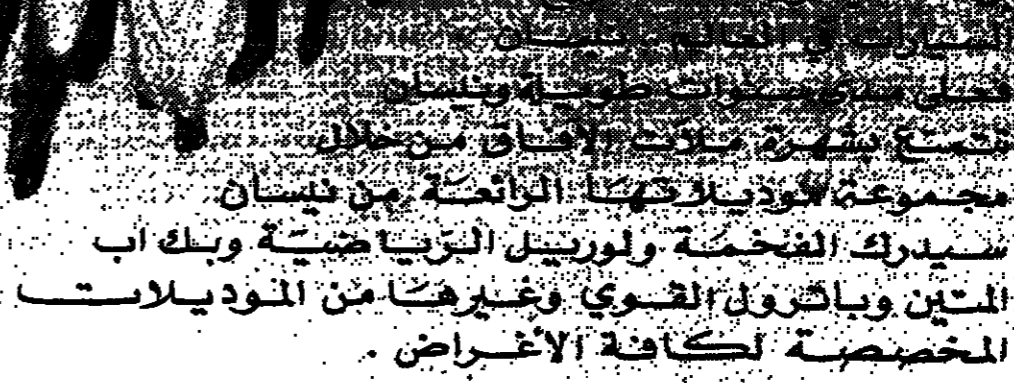 السيارات في العالم، نيسان
فعلى مدى سنوات طويلة ونيسان
تتمتع بشهرة ملأت الآفاق من خلال
مجموعة موديلاتها الرائعة من نيسان
سيدرك الفخمة ولوريل الرياضية وبك اب
المتين وباترول القوي وغيرها من الموديلات
المخصصة لكافة الأغراض .